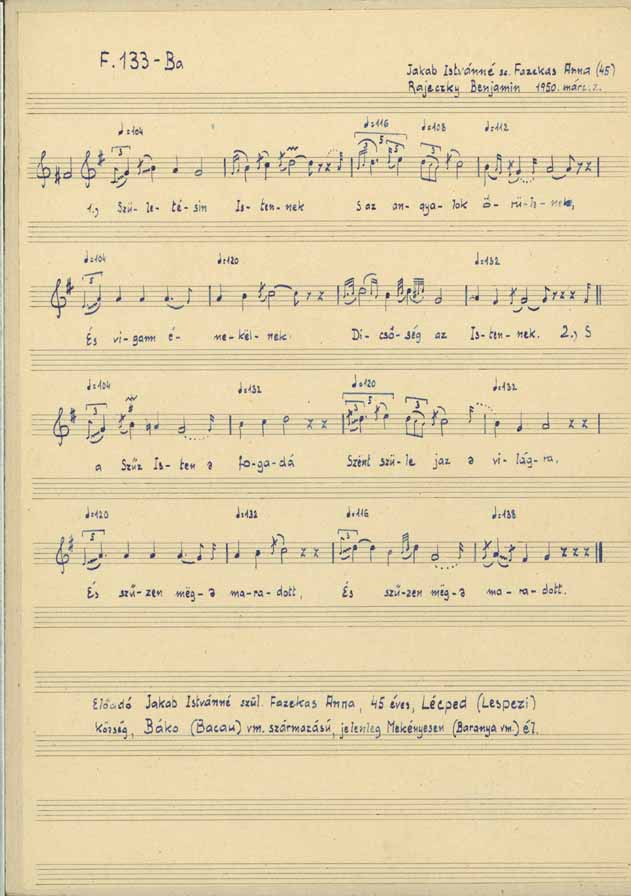 F.133-Ba
Jakab Istvánné sz. Fazekas Anna (45)
Rajeczky Benjamin 1950. márc. 7.
♩=104 ♩=116 ♩=108 ♩=112
1., Szü-le-té-sin Is-ten-nek S az an-gya-lok ő-rü-l-nek,
♩=104 ♩=120 ♩=132
És vi-gann é-ne-kel-nek. Di-cső-ség az Is-ten-nek. 2., S
♩=104 ♩=132 ♩=120 ♩=132
a Szűz Is-ten ə fo-ga-dá Szént szü-le jaz ə vi-lág-ra.
♩=120 ♩=132 ♩=116 ♩=138
És szű-zen még-ə ma-ra-dott, És szű-zen még-ə ma-ra-dott.
Előadó Jakab Istvánné szül. Fazekas Anna, 45 éves, Lécped (Lespezi)
község, Báko (Bacau) vm. származású, jelenleg Mekényesen (Baranya vm.) él.